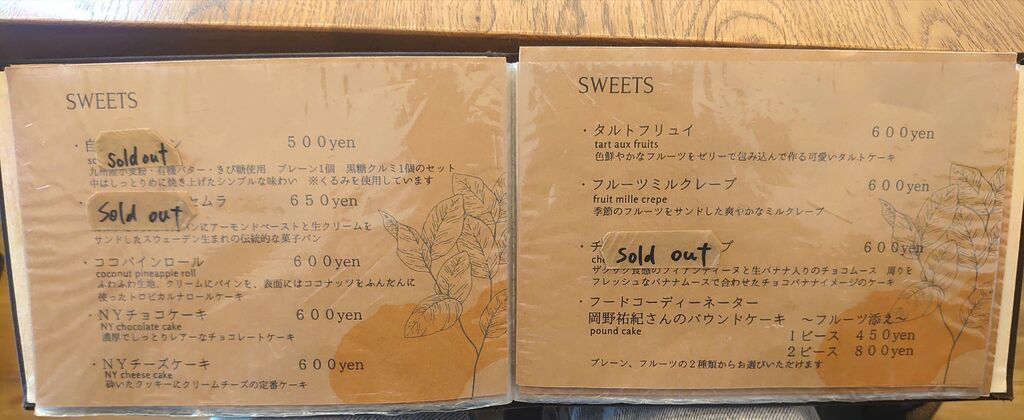 SWEETS
・自 ン 500yen
sc
Sold out
九州産小麦粉・有機バター・きび糖使用 プレーン1個 黒糖クルミ1個のセット
中はしっとりめに焼き上げたシンプルな味わい ※くるみを使用しています
・ セムラ 650yen
Sold out
パンにアーモンドペーストと生クリームを
サンドしたスウェーデン生まれの伝統的な菓子パン
・ココパインロール 600yen
coconut pineapple roll
ふわふわ生地、クリームにパインを、表面にはココナッツをふんだんに
使ったトロピカルナロールケーキ
・NYチョコケーキ 600yen
NY chocolate cake
濃厚でしっとりレアーなチョコレートケーキ
・NYチーズケーキ 600yen
NY cheese cake
砕いたクッキーにクリームチーズの定番ケーキ
SWEETS
・タルトフリュイ 600yen
tart aux fruits
色鮮やかなフルーツをゼリーで包み込んで作る可愛いタルトケーキ
・フルーツミルクレープ 600yen
fruit mille crepe
季節のフルーツをサンドした爽やかなミルクレープ
・チ ブ 600yen
cho
Sold out
ザクザク食感のフィアンティーヌと生バナナ入りのチョコムース 周りを
フレッシュなバナナムースで合わせたチョコバナナイメージのケーキ
・フードコーディーネーター
岡野祐紀さんのパウンドケーキ ～フルーツ添え～
pound cake
1ピース 450yen
2ピース 800yen
プレーン、フルーツの2種類からお選びいただけます